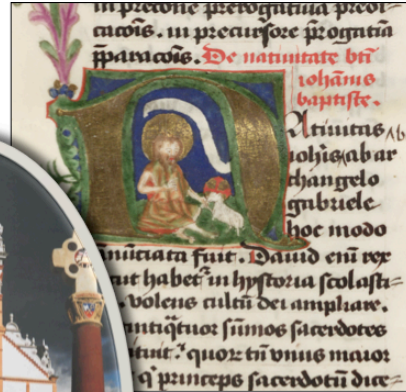 in precone prerogatiua predi-
cacõis. in precursore p̃rogatia
p̃paracõis. De natiuitate bti
iohãnis
baptiste.
Natiuitas
iohis ab ar
changelo
gabriele
hoc modo
nũciata fuit. Dauid enĩ rex
habet in hystoria scolasti=
volens cultũ dei ampliare.
sũmos sacerdotes
quoꝝ tñ vnus maior
princeps sacerdotũ dice=